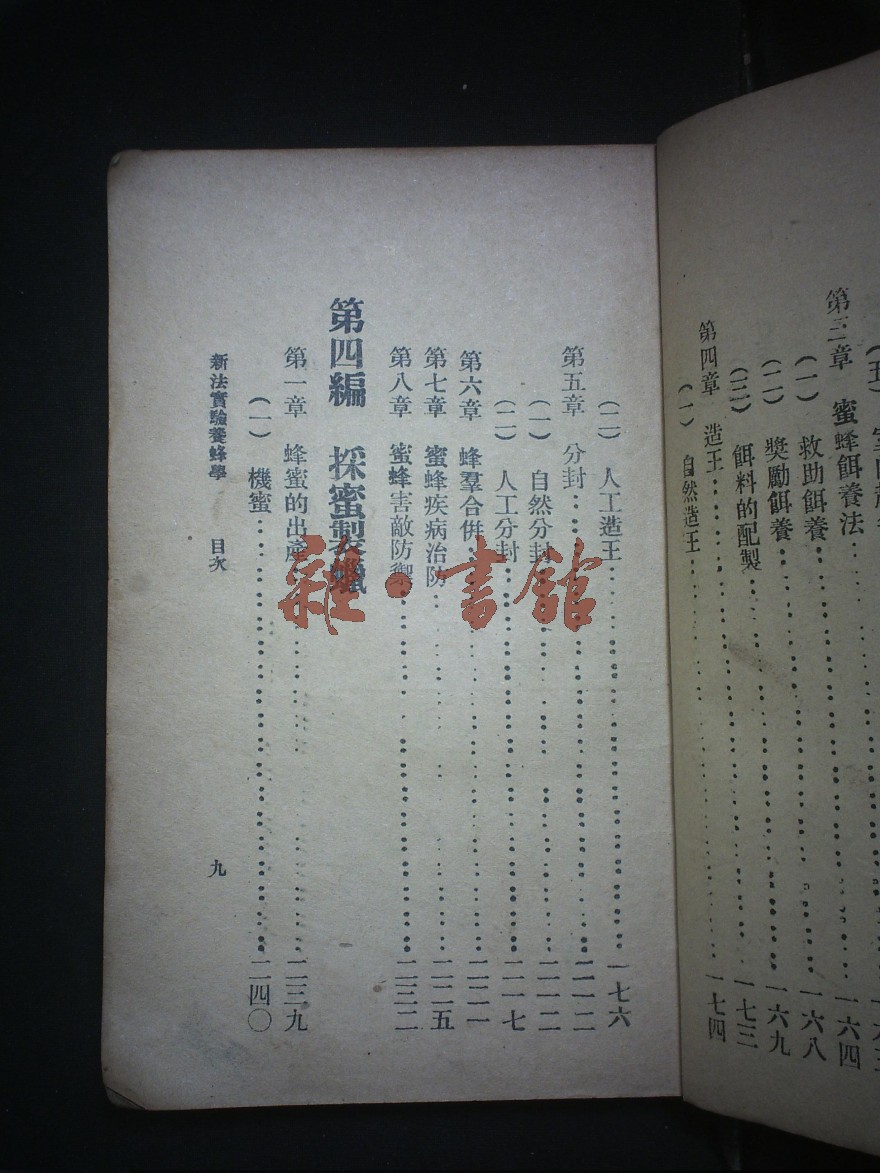 第三章 蜜蜂餌養法 一六四
(一) 救助餌養 一六八
(二) 獎勵餌養 一六九
(三) 餌料的配製 一七三
第四章 造王
(一) 自然造王 一七四
(二) 人工造王 一七六
第五章 分封 二一二
(一) 自然分封 二一二
(二) 人工分封 二一七
第六章 蜂羣合併 二二一
第七章 蜜蜂疾病治防 二二五
第八章 蜜蜂害敵防禦 二三二
第四編 採蜜製蠟
第一章 蜂蜜的出產 二三九
(一) 機蜜 二四〇
新法實驗養蜂學 目次 九
雜·書館